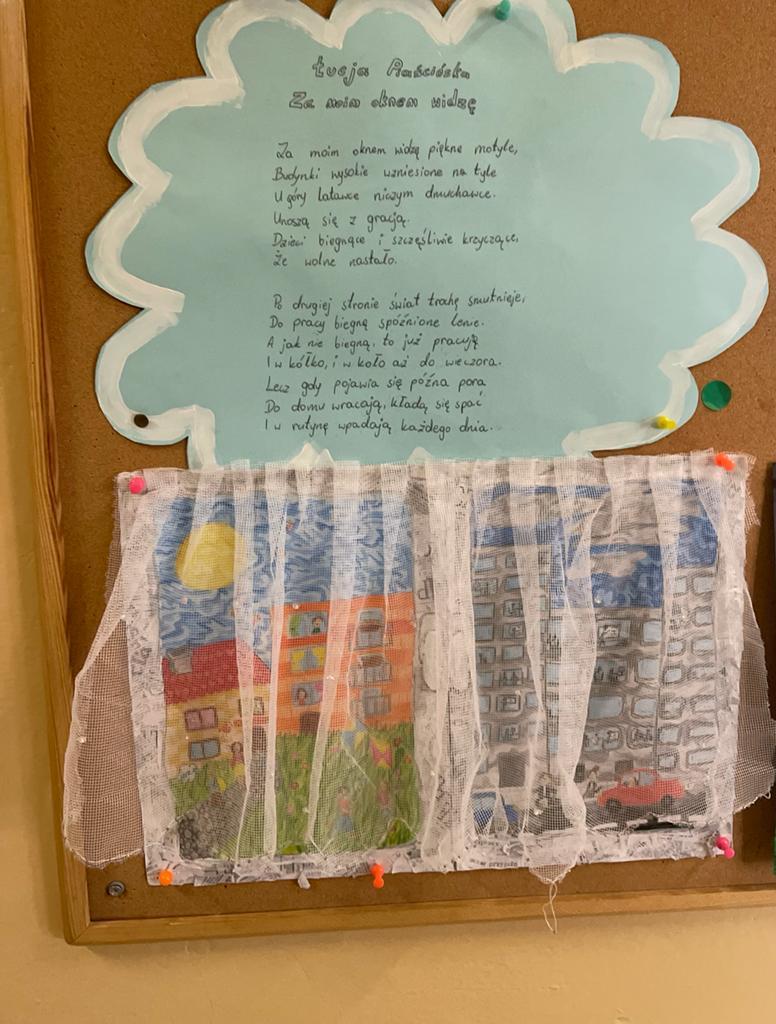 Łucja Piaścińska
Za moim oknem widzę
Za moim oknem widzę piękne motyle,
Budynki wysokie wzniesione na tyle
U góry latawce niczym dmuchawce.
Unoszą się z gracją.
Dzieci biegnące i szczęśliwie krzyczące,
Że wolne nastało.
Po drugiej stronie świat trochę smutnieje,
Do pracy biegną spóźnione lenie.
A jak nie biegną, to już pracują
I w kółko, i w koło aż do wieczora.
Lecz gdy pojawia się późna pora
Do domu wracają, kładą się spać
I w rutynę wpadają każdego dnia.